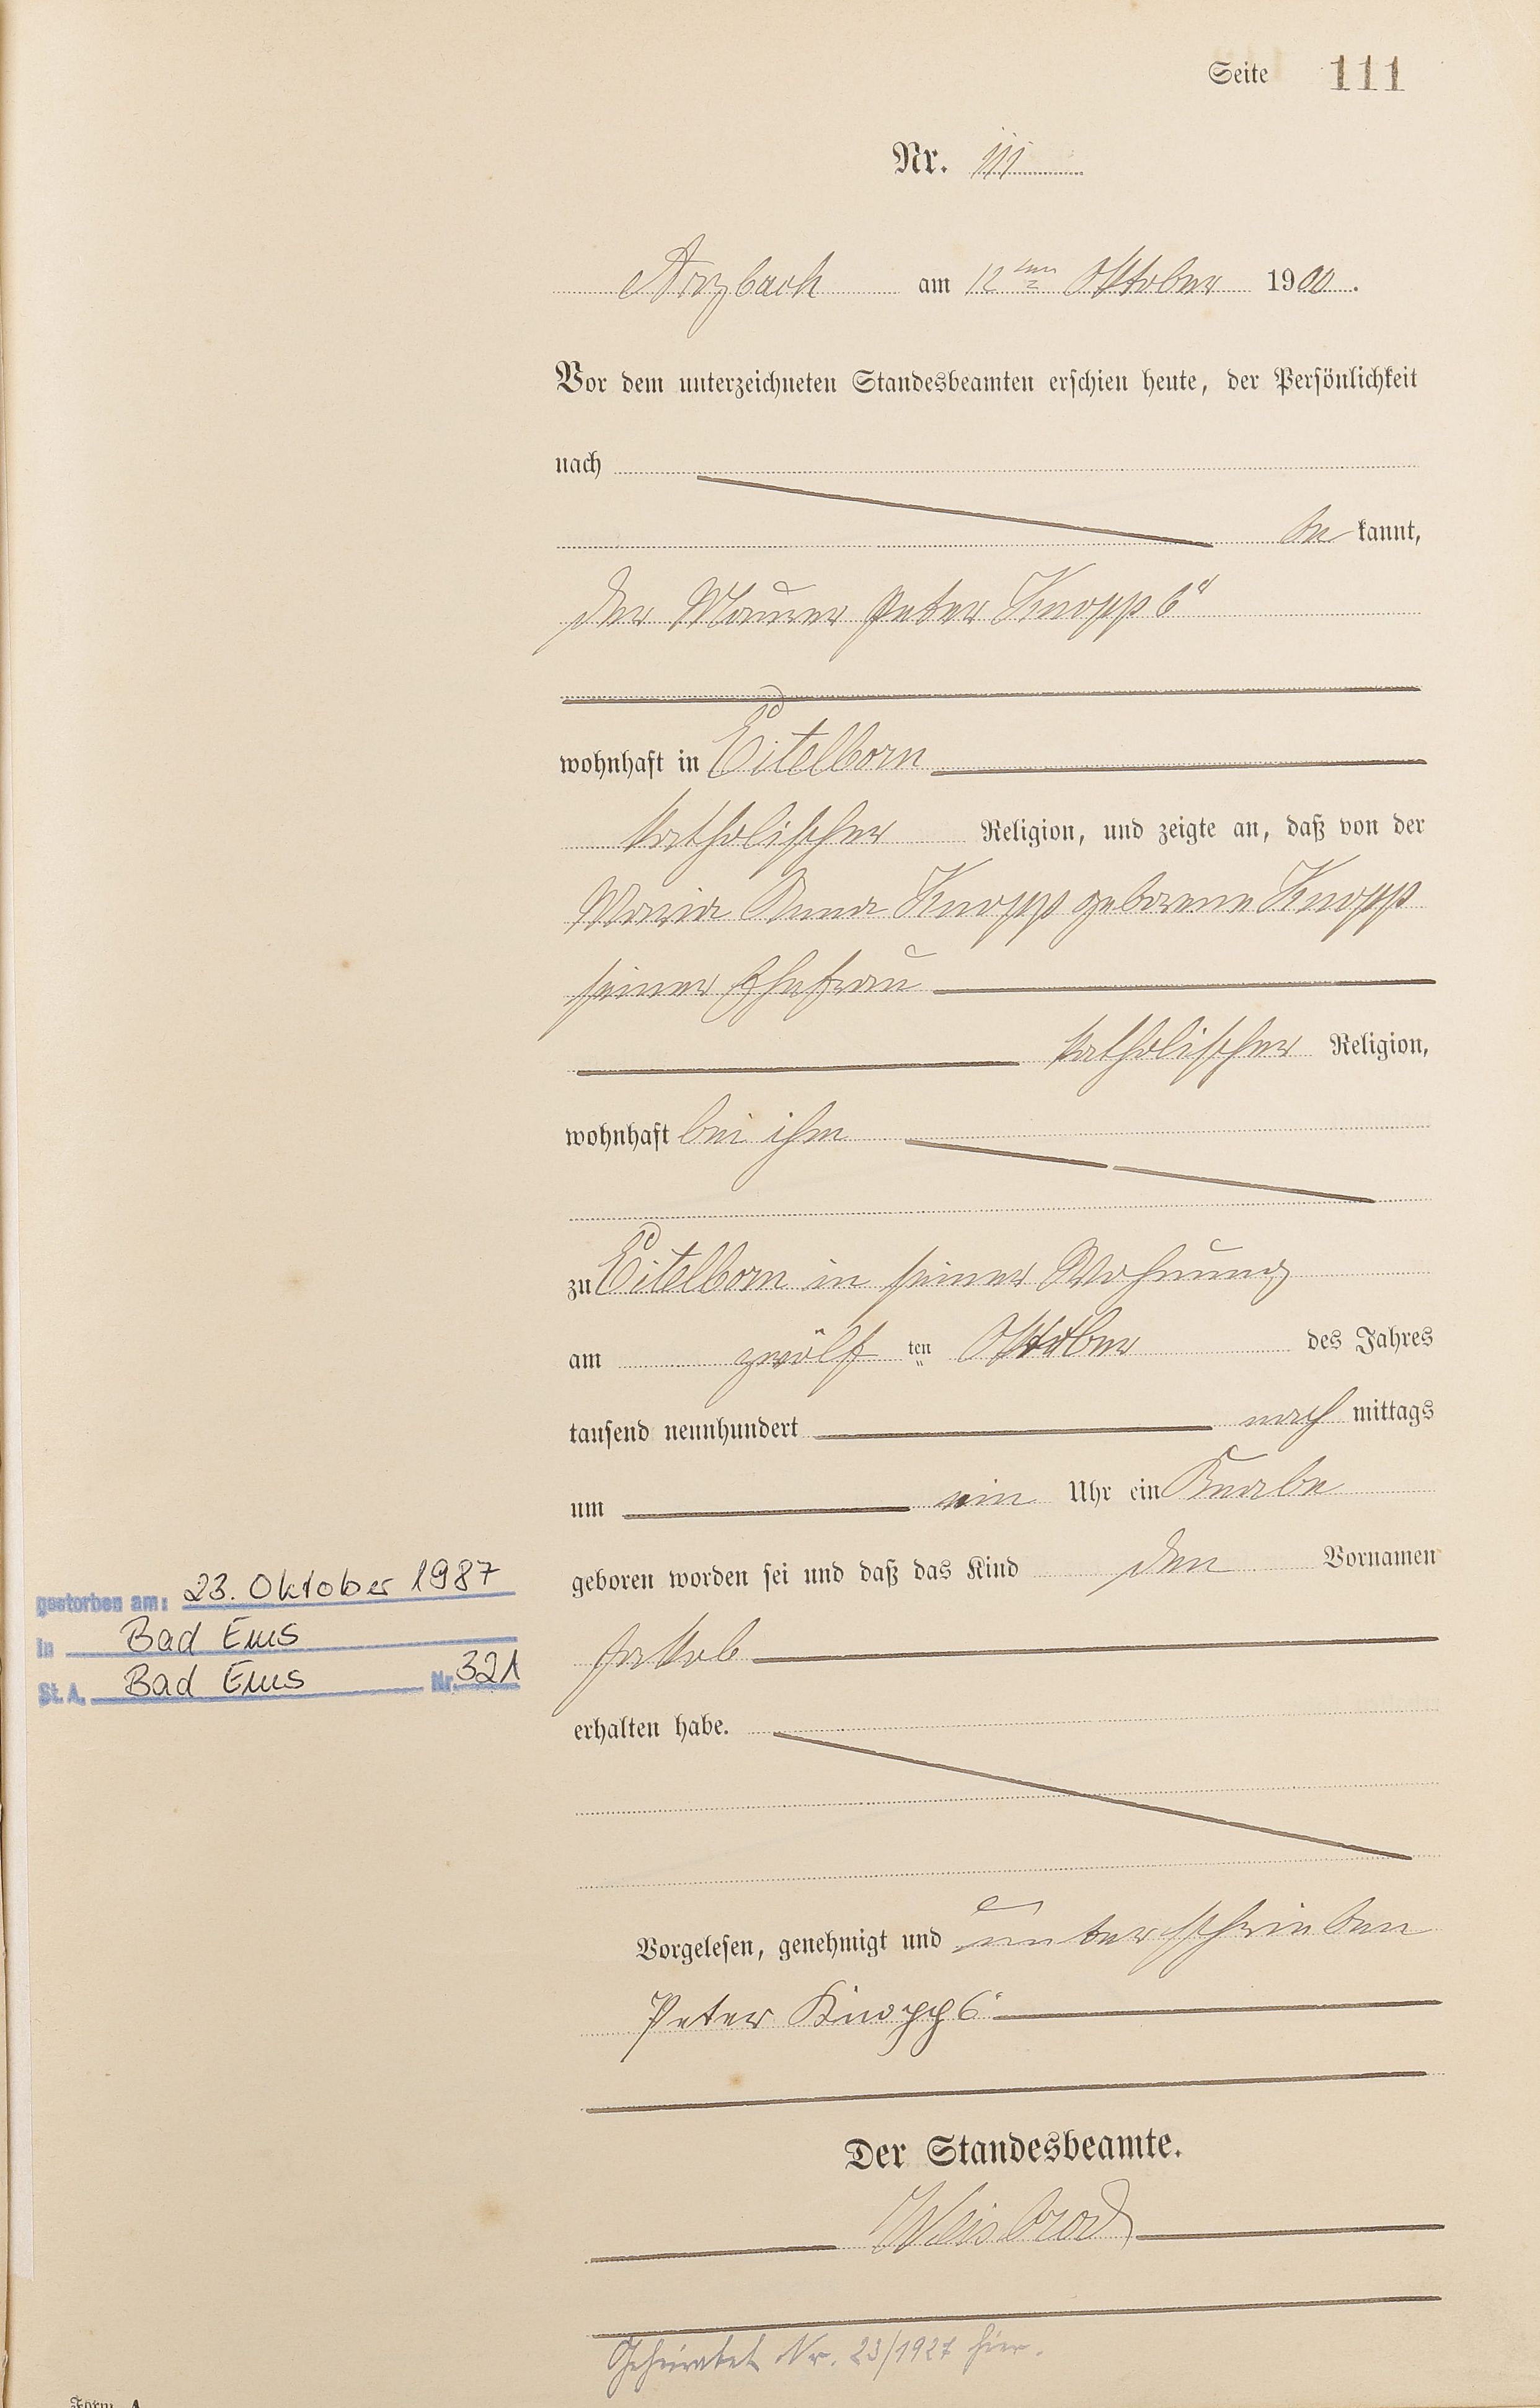 Seite 111
Nr. 111
Arzbach am 12ten Oktober 1900.
Vor dem unterzeichneten Standesbeamten erschien heute, der Persönlichkeit
nach
be kannt,
der Maurer Peter Knopp 6"
wohnhaft in Eitelborn
katholischer Religion, und zeigte an, daß von der
Maria Anna Knopp geborene Knopp
seiner Ehefrau
katholischer Religion,
wohnhaft bei ihm
zu Eitelborn in seiner Wohnung
am zwölf ten Oktober des Jahres
tausend neunhundert nach mittags
um ein Uhr ein Knabe
geboren worden sei und daß das Kind den Vornamen
Jakob
erhalten habe.
gestorben am: 23. Oktober 1987
in Bad Ems
St. A. Bad Ems Nr. 321
Vorgelesen, genehmigt und unterschrieben
Peter Knopp 6"
Der Standesbeamte.
Weisbrod
Geheiratet Nr. 23/1927 hier.
Form. A